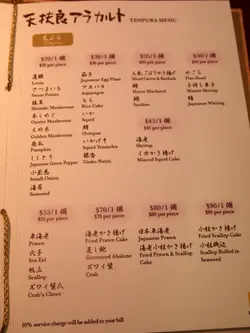 天扶良アラカルト
TEMPURA MENU
$20/1個
$20 per piece
蓮根
Lotus
さつまいも
Sweet Potato
椎茸
Shiitake Mushroom
本しめじ
Oyster Mushroom
えのき
Golden Mushroom
南瓜
Pumpkin
ししとう
Japanese Green Pepper
小玉葱
Small Onion
海苔
Seaweed
$30/1個
$30 per piece
茄子
Japanese Egg Plane
アスパラ
Asparagus
いか
Squid
蛸
Octopus
いかげそ
Squid Tentacles
銀杏
Ginko Nut
$35/1個
$35 per piece
人参、ごぼうかき揚げ
鯵
Horse Mackerel
鰯
Sardine
$45/1個
$45 per piece
海老
Shrimp
イカかき揚げ
Minced Squid Cake
$60/1個
$60 per piece
めごち
Fine Head
鱚
Japanese Whiting
$55/1個
$55 per piece
車海老
Prawn
穴子
Sea Eel
帆立
Scallop
ズワイ蟹爪
Crab's Claws
$70/1個
$70 per piece
海老かき揚げ
Fried Prawn Cake
蒸し鮑
Steamed Abalone
ズワイ蟹
Crab
$80/1個
$80 per piece
日本車海老
Japanese Prawn
海老小柱かき揚げ
Fried Prawn & Scallop Cake
$90/1個
$90 per piece
小柱かき揚げ
Fried Scallop Cake
小柱磯辺
Scallop Rolled in Seaweed
10% service charge will be added to your bill